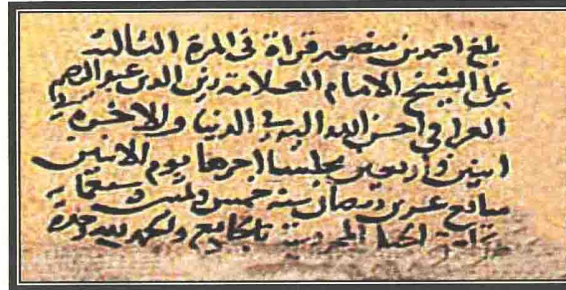 بلغ احمد بن منصور قراة في المرة الثالثة
على الشيخ الامام العلامة زين الدين عبد الرحيم
العراقي احسن الله اليه في الدنيا والاخرة في
اثنين واربعين مجلسا اخرها يوم الاثنين
سابع عشرين رمضان سنة خمس وستين وسبعمائة
بالجامع والحمد لله وحده